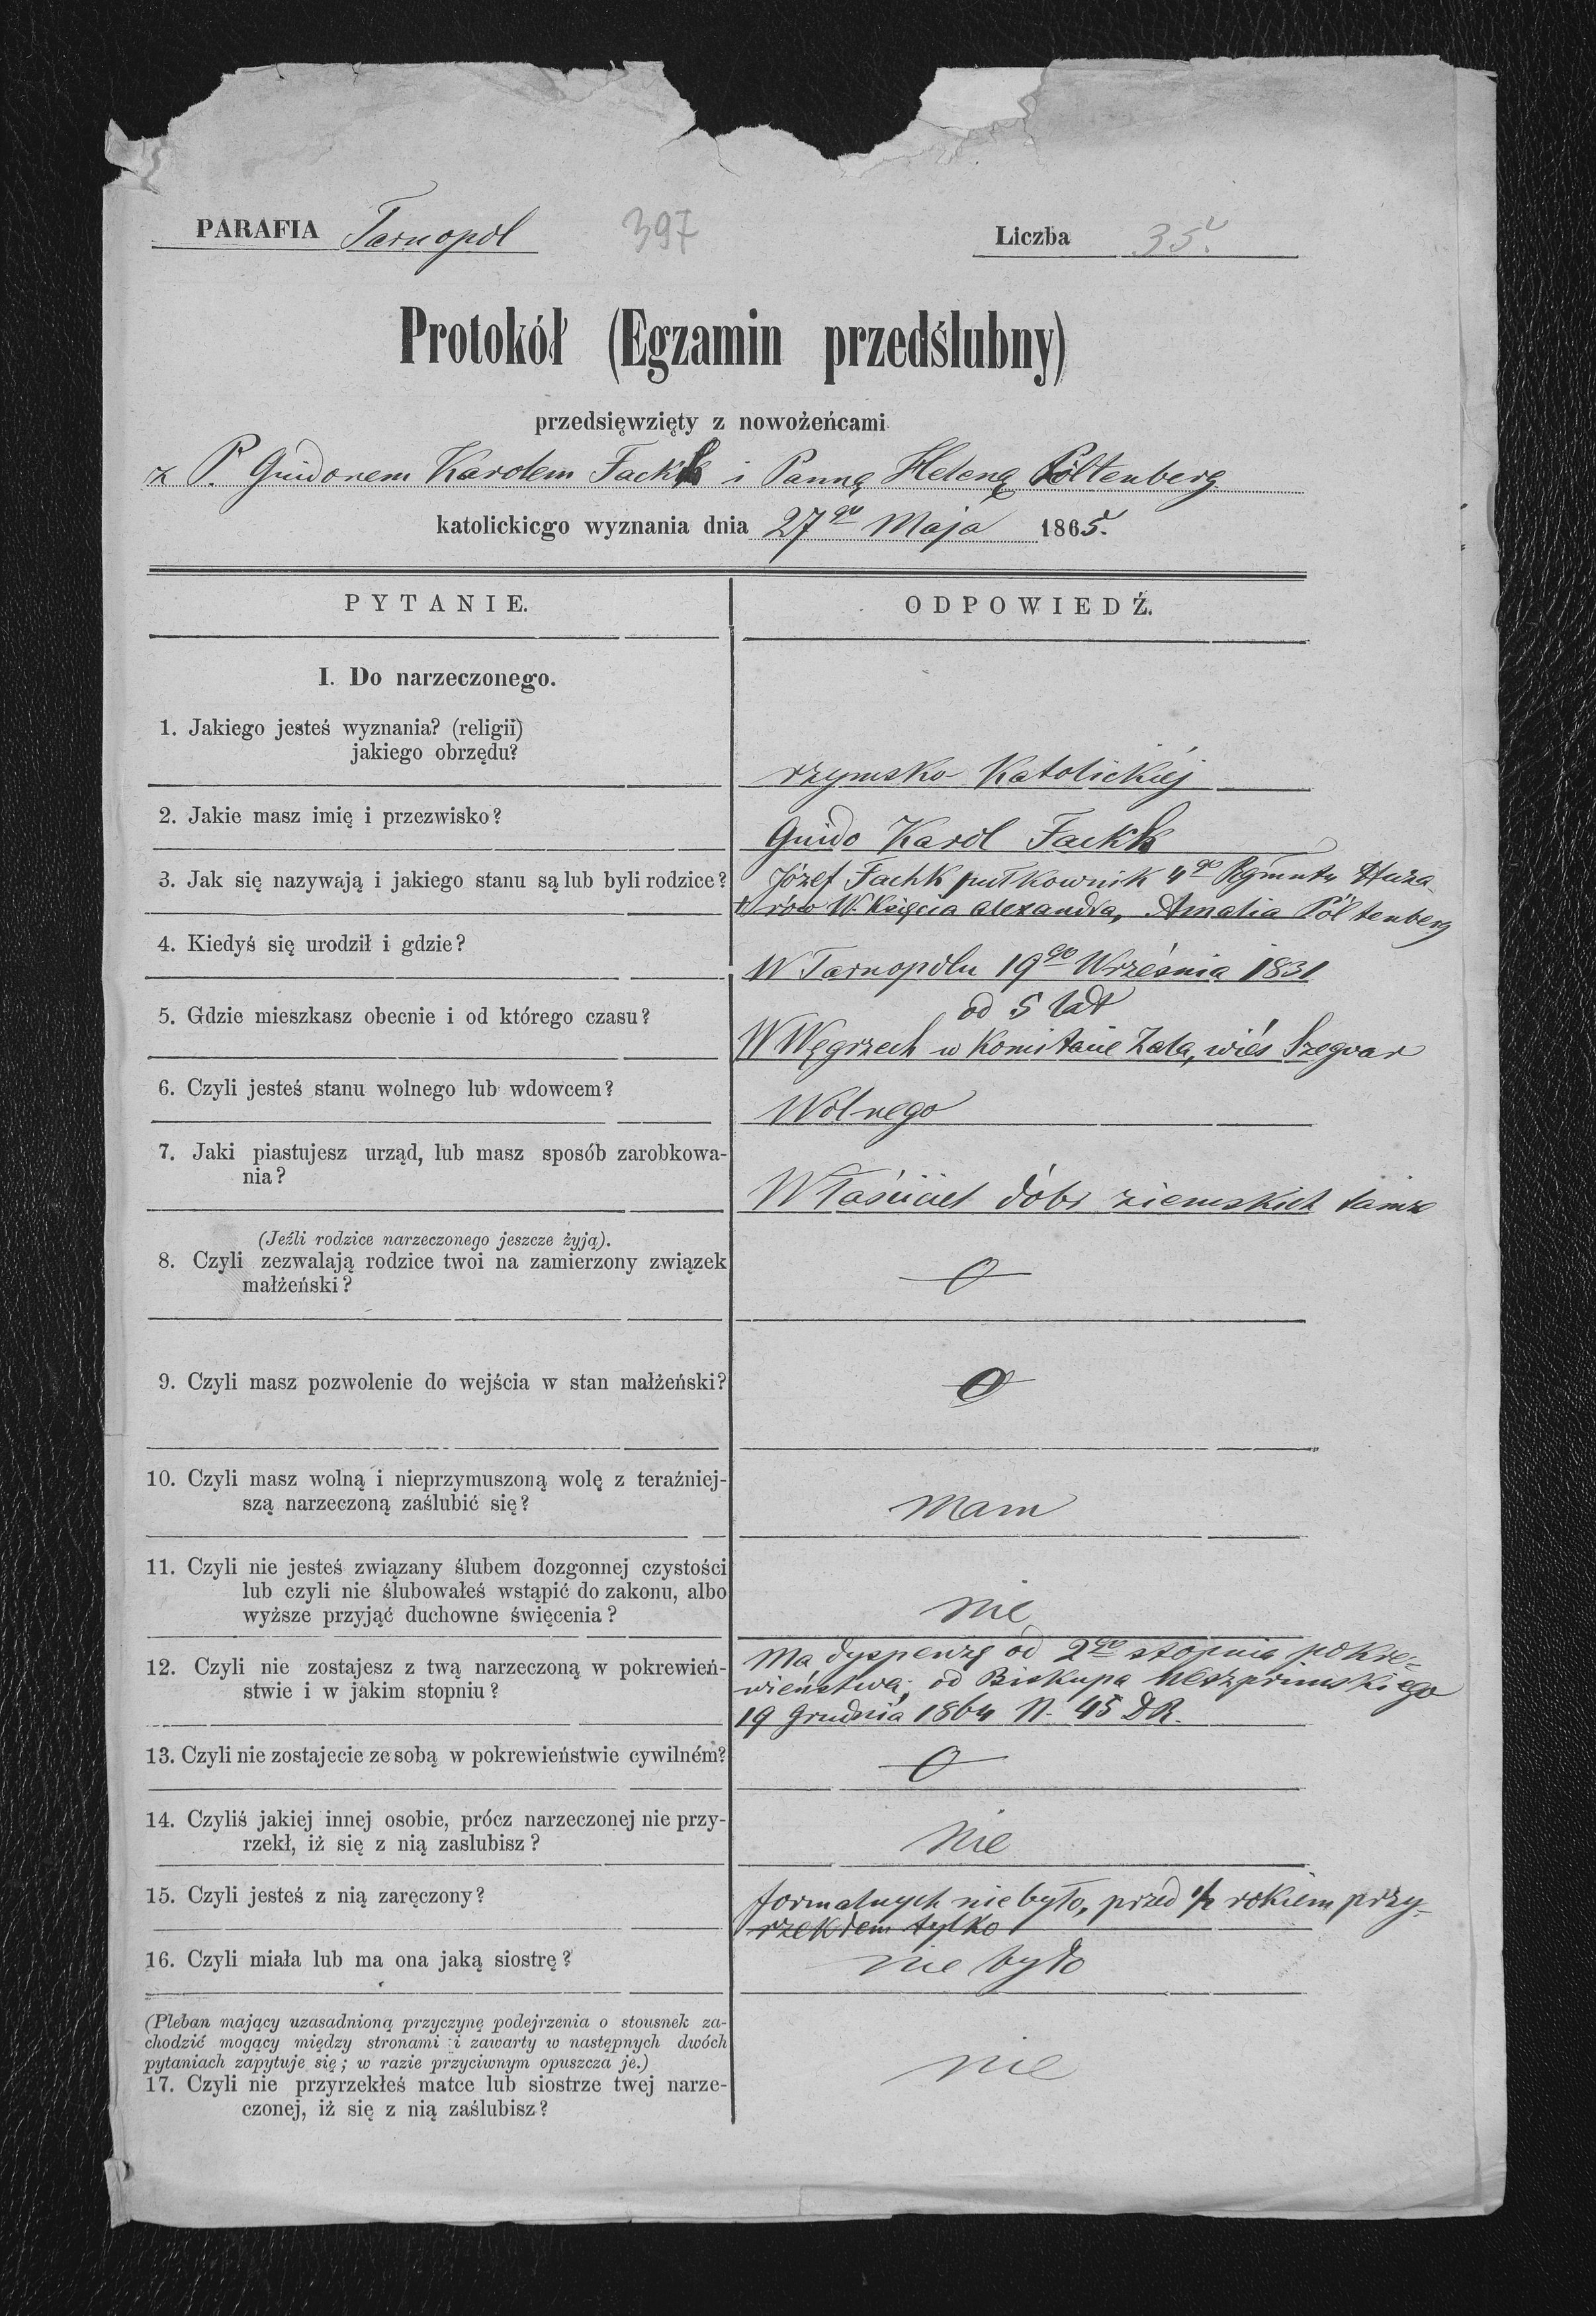 PARAFIA Tarnopol 397 Liczba 35.
Protokół (Egzamin przedślubny)
przedsięwzięty z nowożeńcami
z P. Guidonem Karolem Fackh i Panną Heleną Pöltenberg
katolickiego wyznania dnia 27go Maja 1865.
PYTANIE. ODPOWIEDŹ.
I. Do narzeczonego.
1. Jakiego jesteś wyznania? (religii)
jakiego obrzędu?
rzymsko Katolickiéj
2. Jakie masz imię i przezwisko?
Guido Karol Fackh
3. Jak się nazywają i jakiego stanu są lub byli rodzice?
Józef Fachk pułkownik 4go Rgmentu Huza-
rów W. Księcia Alexandra, Amalia Pöltenberg
4. Kiedyś się urodził i gdzie?
W Tarnopolu 19go Września 1831
5. Gdzie mieszkasz obecnie i od którego czasu?
od 5 lat
W Węgrzech w Komitacie Zala, wieś Szegvar
6. Czyli jesteś stanu wolnego lub wdowcem?
Wolnego
7. Jaki piastujesz urząd, lub masz sposób zarobkowa-
nia?
Właściciel dóbr ziemskich tamże
(Jeźli rodzice narzeczonego jeszcze żyją).
8. Czyli zezwalają rodzice twoi na zamierzony związek
małżeński?
0
9. Czyli masz pozwolenie do wejścia w stan małżeński?
0
10. Czyli masz wolną i nieprzymuszoną wolę z teraźniej-
szą narzeczoną zaślubić się?
Mam
11. Czyli nie jesteś związany ślubem dozgonnej czystości
lub czyli nie ślubowałeś wstąpić do zakonu, albo
wyższe przyjąć duchowne święcenia?
nie
12. Czyli nie zostajesz z twą narzeczoną w pokrewień-
stwie i w jakim stopniu?
Ma dyspenzę od 2go stopnia pokre-
wieństwa, od Biskupa Weszprimskiego
19 Grudnia 1864 N. 45 DR.
13. Czyli nie zostajecie ze sobą w pokrewieństwie cywilném?
0
14. Czyliś jakiej innej osobie, prócz narzeczonej nie przy-
rzekł, iż się z nią zaslubisz?
Nie
15. Czyli jesteś z nią zaręczony?
formalnych nie było, przed 1/2 rokiem przy-
rzekłem tylko
16. Czyli miała lub ma ona jaką siostrę?
nie było
(Pleban mający uzasadnioną przyczynę podejrzenia o stousnek za-
chodzić mogący między stronami i zawarty w następnych dwóch
pytaniach zapytuje się; w razie przyciwnym opuszcza je.)
17. Czyli nie przyrzekłeś matce lub siostrze twej narze-
czonej, iż się z nią zaślubisz?
nie